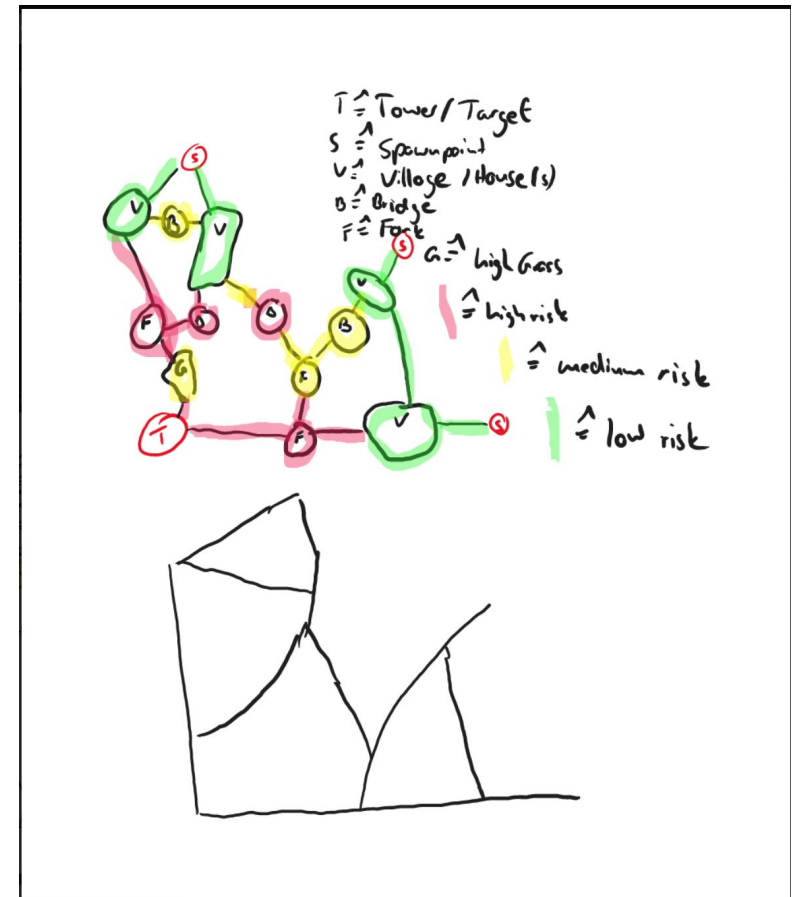 T ≙ Tower / Target
S ≙ Spawnpoint
V ≙ Village / House(s)
B ≙ Bridge
F ≙ Fork
G ≙ high Grass
≙ high risk
≙ medium risk
≙ low risk
S
V
B
V
S
V
F
B
B
G
F
T
F
V
S